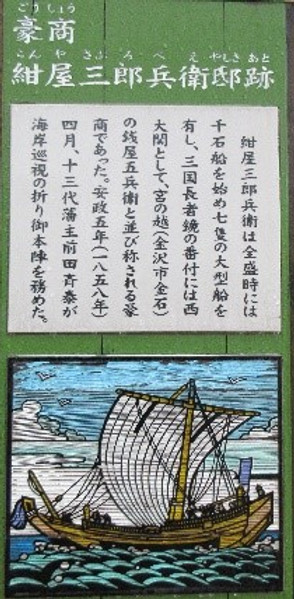 ごうしょう
豪商
こんやさぶろべえやしきあと
紺屋三郎兵衛邸跡
紺屋三郎兵衛は全盛時には
千石船を始め七隻の大型船を
有し、三国長者鏡の番付には西
大関として、宮の越(金沢市金石)
の銭屋五兵衛と並び称される豪
商であった。安政五年(一八五八年)
四月、十三代藩主前田斉泰が
海岸巡視の折り御本陣を務めた。